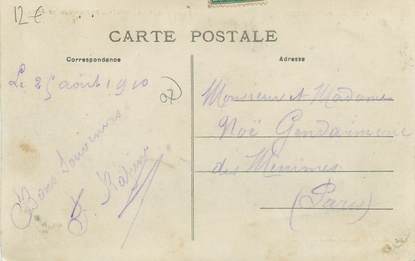 12€
CARTE POSTALE
Correspondance
Adresse
Le 25 août 1910
07
Bons Souvenirs
Monsieur et Madame
Noë Gendarmerie
des Minimes
(Paris)